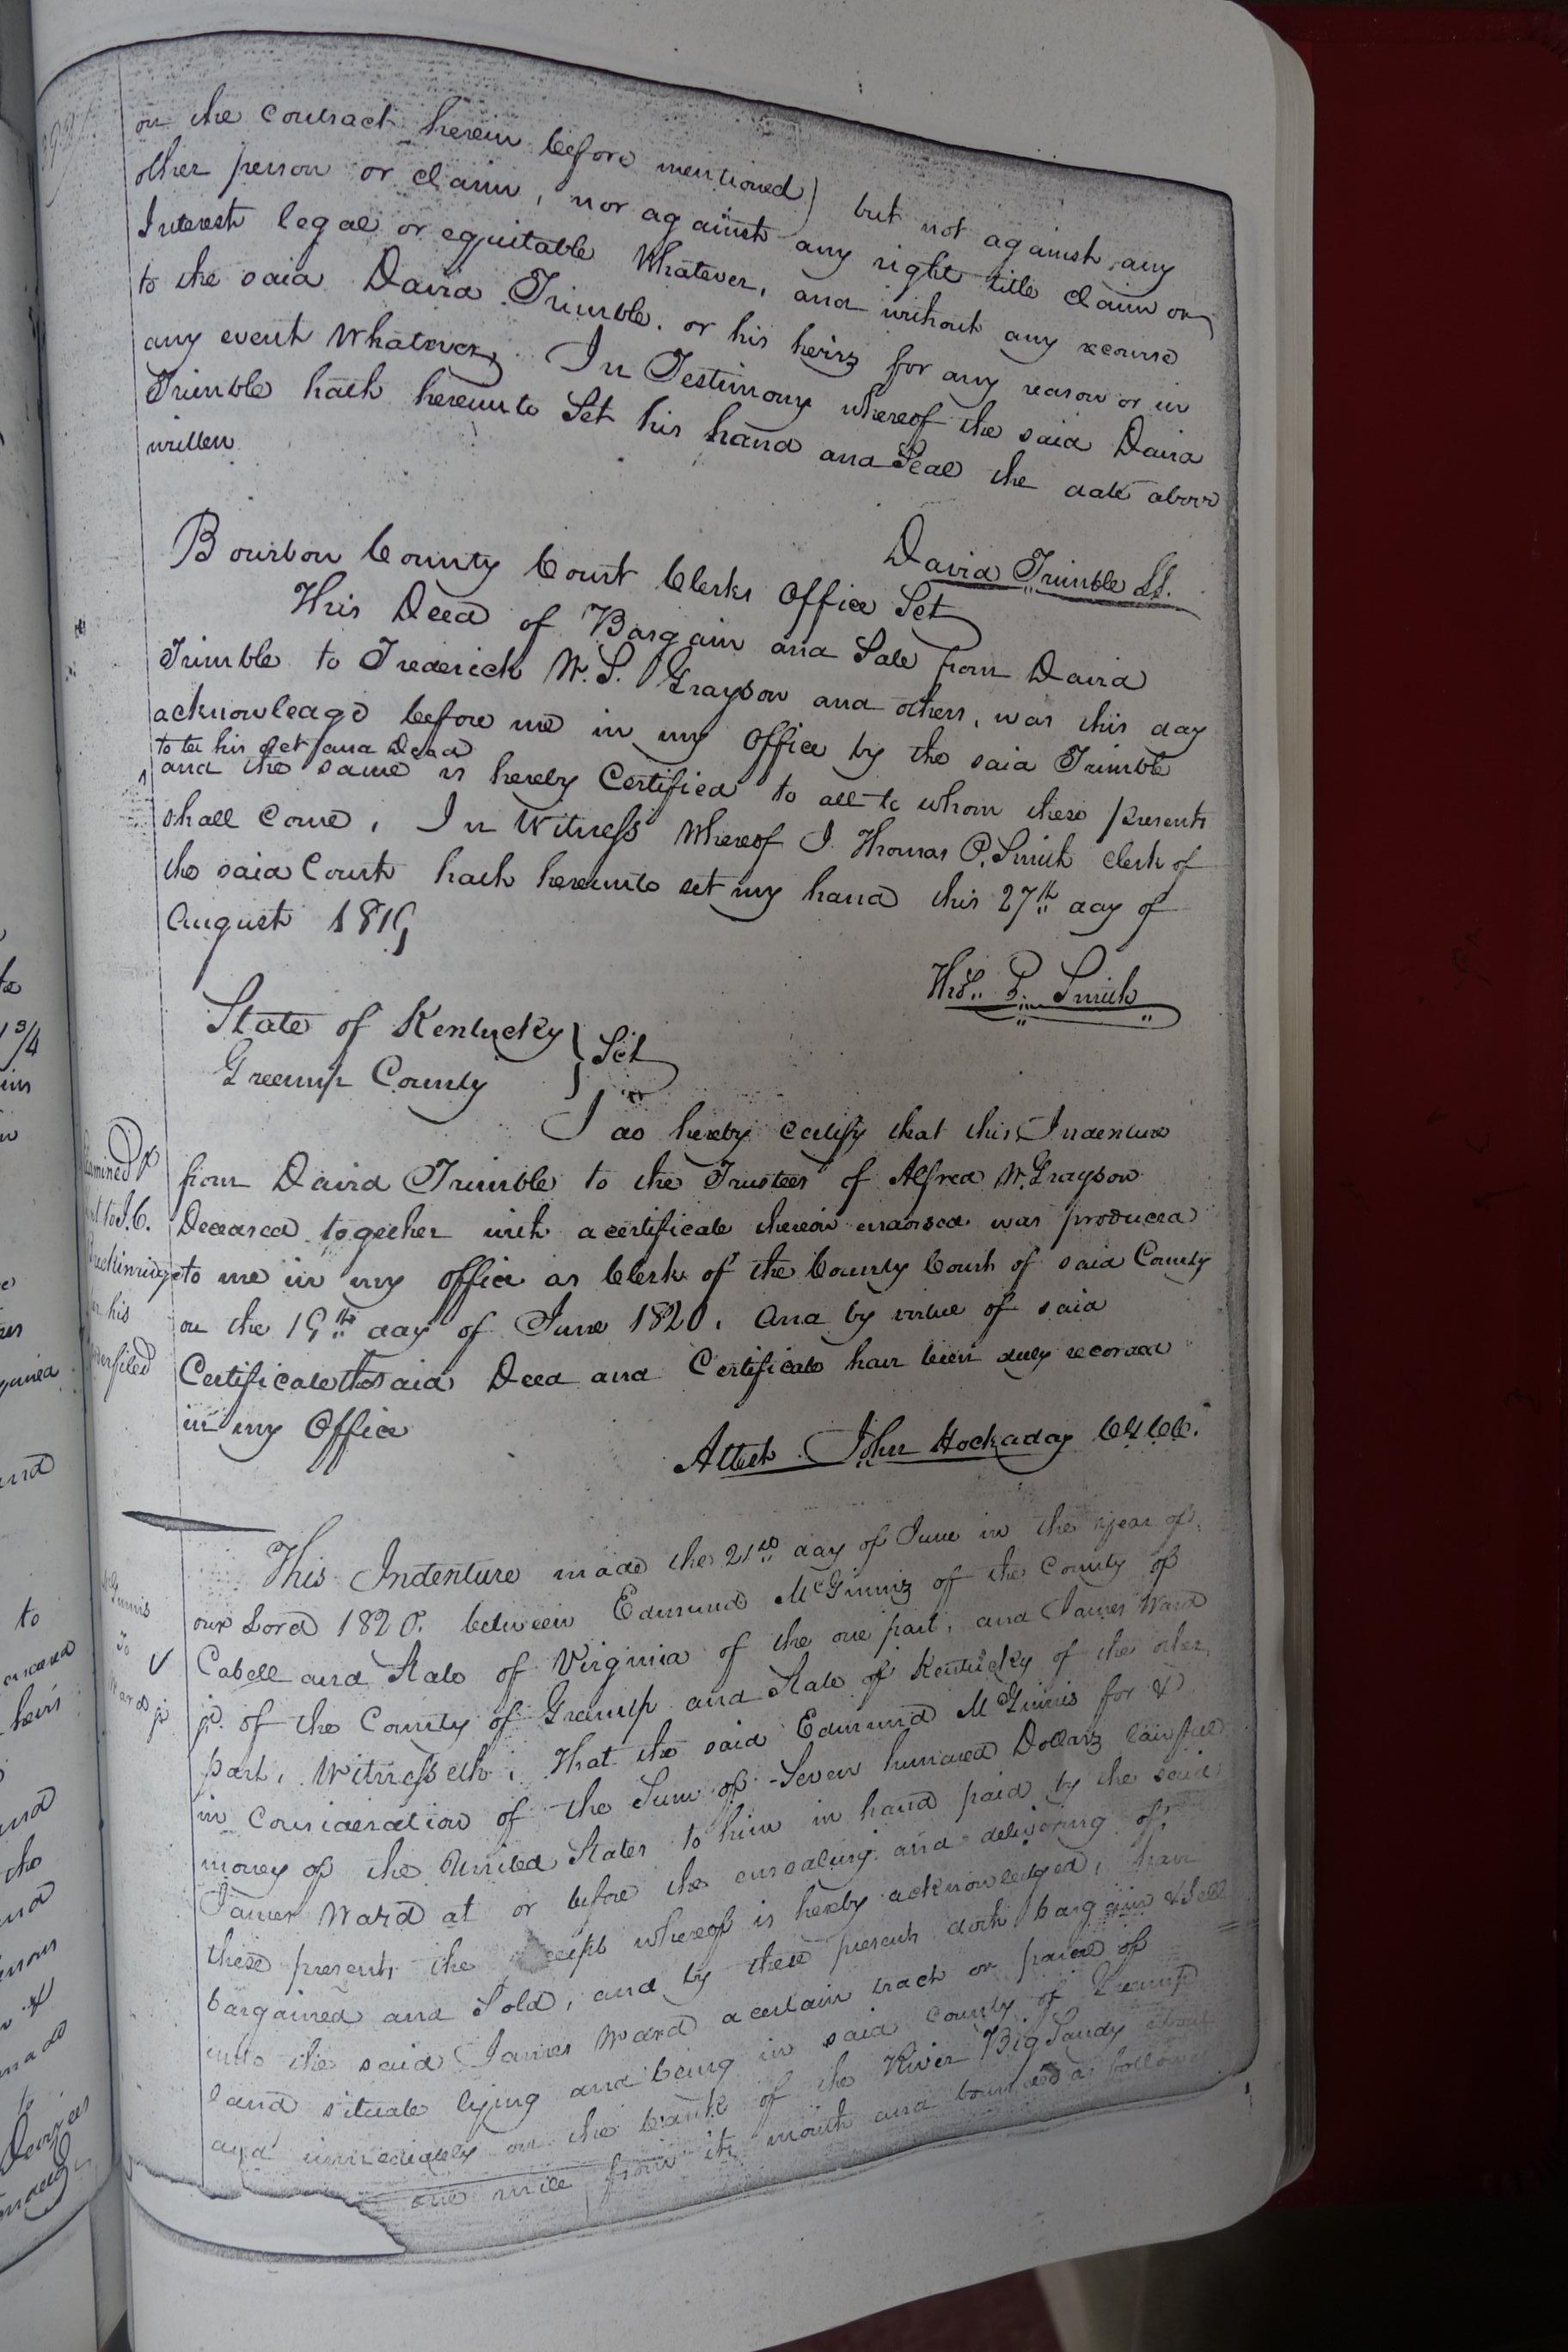 on the contract herein before mentioned) but not against any
other person or claim, nor against any right title claim or
Interest legal or equitable Whatever, and without any recourse
to the said David Trimble. or his heirs for any reason or in
any event Whatever, In Testimony whereof the said David
Trimble hath hereunto Set his hand and Seal the date above
written
David Trimble LS.
Bourbon County Court Clerks Office Sct
This Deed of Bargain and Sale from David
Trimble to Frederick W. S. Grayson and others, was this day
acknowledged before me in my Office by the said Trimble
to be his act and Deed
^ and the same is hereby Certified to all to whom these presents
shall come, In Witness Whereof I Thomas P. Smith Clerk of
the said Court hath hereunto set my hand this 27th day of
August 1819
Thos. P. Smith
State of Kentucky } Sct
Greenup County
I do hereby certify that this Indenture
from David Trimble to the Trustees of Alfred W. Grayson
Deceased together with a certificate thereon endorsed was produced
to me in my office as Clerk of the County Court of said County
on the 19th day of June 1820. And by virtue of said
Certificate the said Deed and Certificate has been duly recorded
in my Office
Attest John Hockaday C.G.C.C.
Examined &
to J. C.
Breckinridge
his
filed
This Indenture made the 21st day of June in the year of
our Lord 1820. between Edmund McGinnis of the County of
Cabell and State of Virginia of the one part, and James Ward
jr. of the County of Greenup and State of Kentucky of the other
part, Witnesseth, That the said Edmund McGinnis for &
in consideration of the Sum of Seven hundred Dollars lawful
money of the United States to him in hand paid by the said
James Ward at or before the ensealing and delivering of
these presents the receipt whereof is hereby acknowledged, hath
bargained and Sold, and by these presents doth bargain & Sell
unto the said James Ward a certain tract or parcel of
land situate lying and being in said County of Greenup
and immediately on the bank of the River Big Sandy about
one mile from its mouth and bounded as follows
McGinnis
To
Ward jr